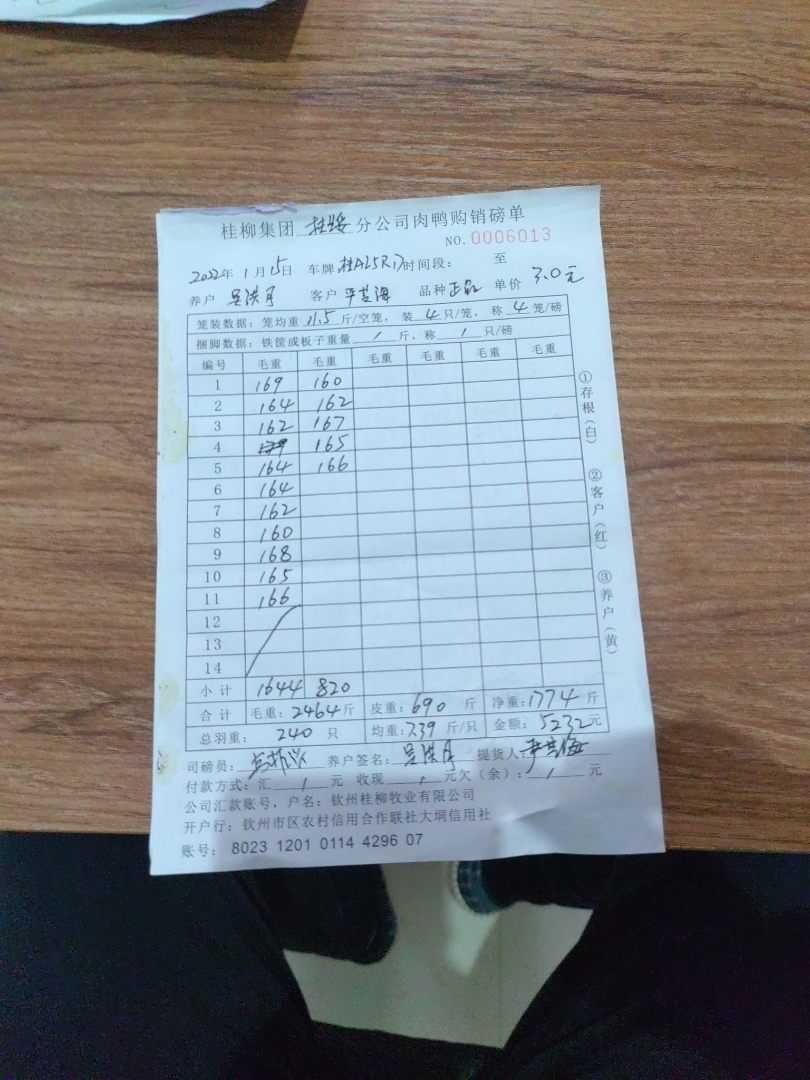 桂柳集团 分公司肉鸭购销磅单
NO.0006013
2022年 1月15日 车牌 桂AL5R17 时间段： 至
养户 客户 品种 正品 单价 3.0元
笼装数据：笼均重 11.5 斤/空笼，装 4 只/笼，称 4 笼/磅
捆脚数据：铁筐或板子重量 / 斤，称 / 只/磅
编号 毛重 毛重 毛重 毛重 毛重 毛重
1 169 160
2 164 162
3 162 167
4 165
5 164 166
6 164
7 162
8 160
9 168
10 165
11 166
12
13
14
小计 1644 820
合计 毛重：2464斤 皮重：690 斤 净重：1774 斤
总羽重： 240 只 均重：7.39 斤/只 金额：5232元
司磅员： 养户签名： 提货人：
付款方式：汇 / 元 收现 / 元欠（余）：/ 元
公司汇款账号，户名：钦州桂柳牧业有限公司
开户行：钦州市区农村信用合作联社大垌信用社
账号： 8023 1201 0114 4296 07
①存根（白）
②客户（红）
③养户（黄）